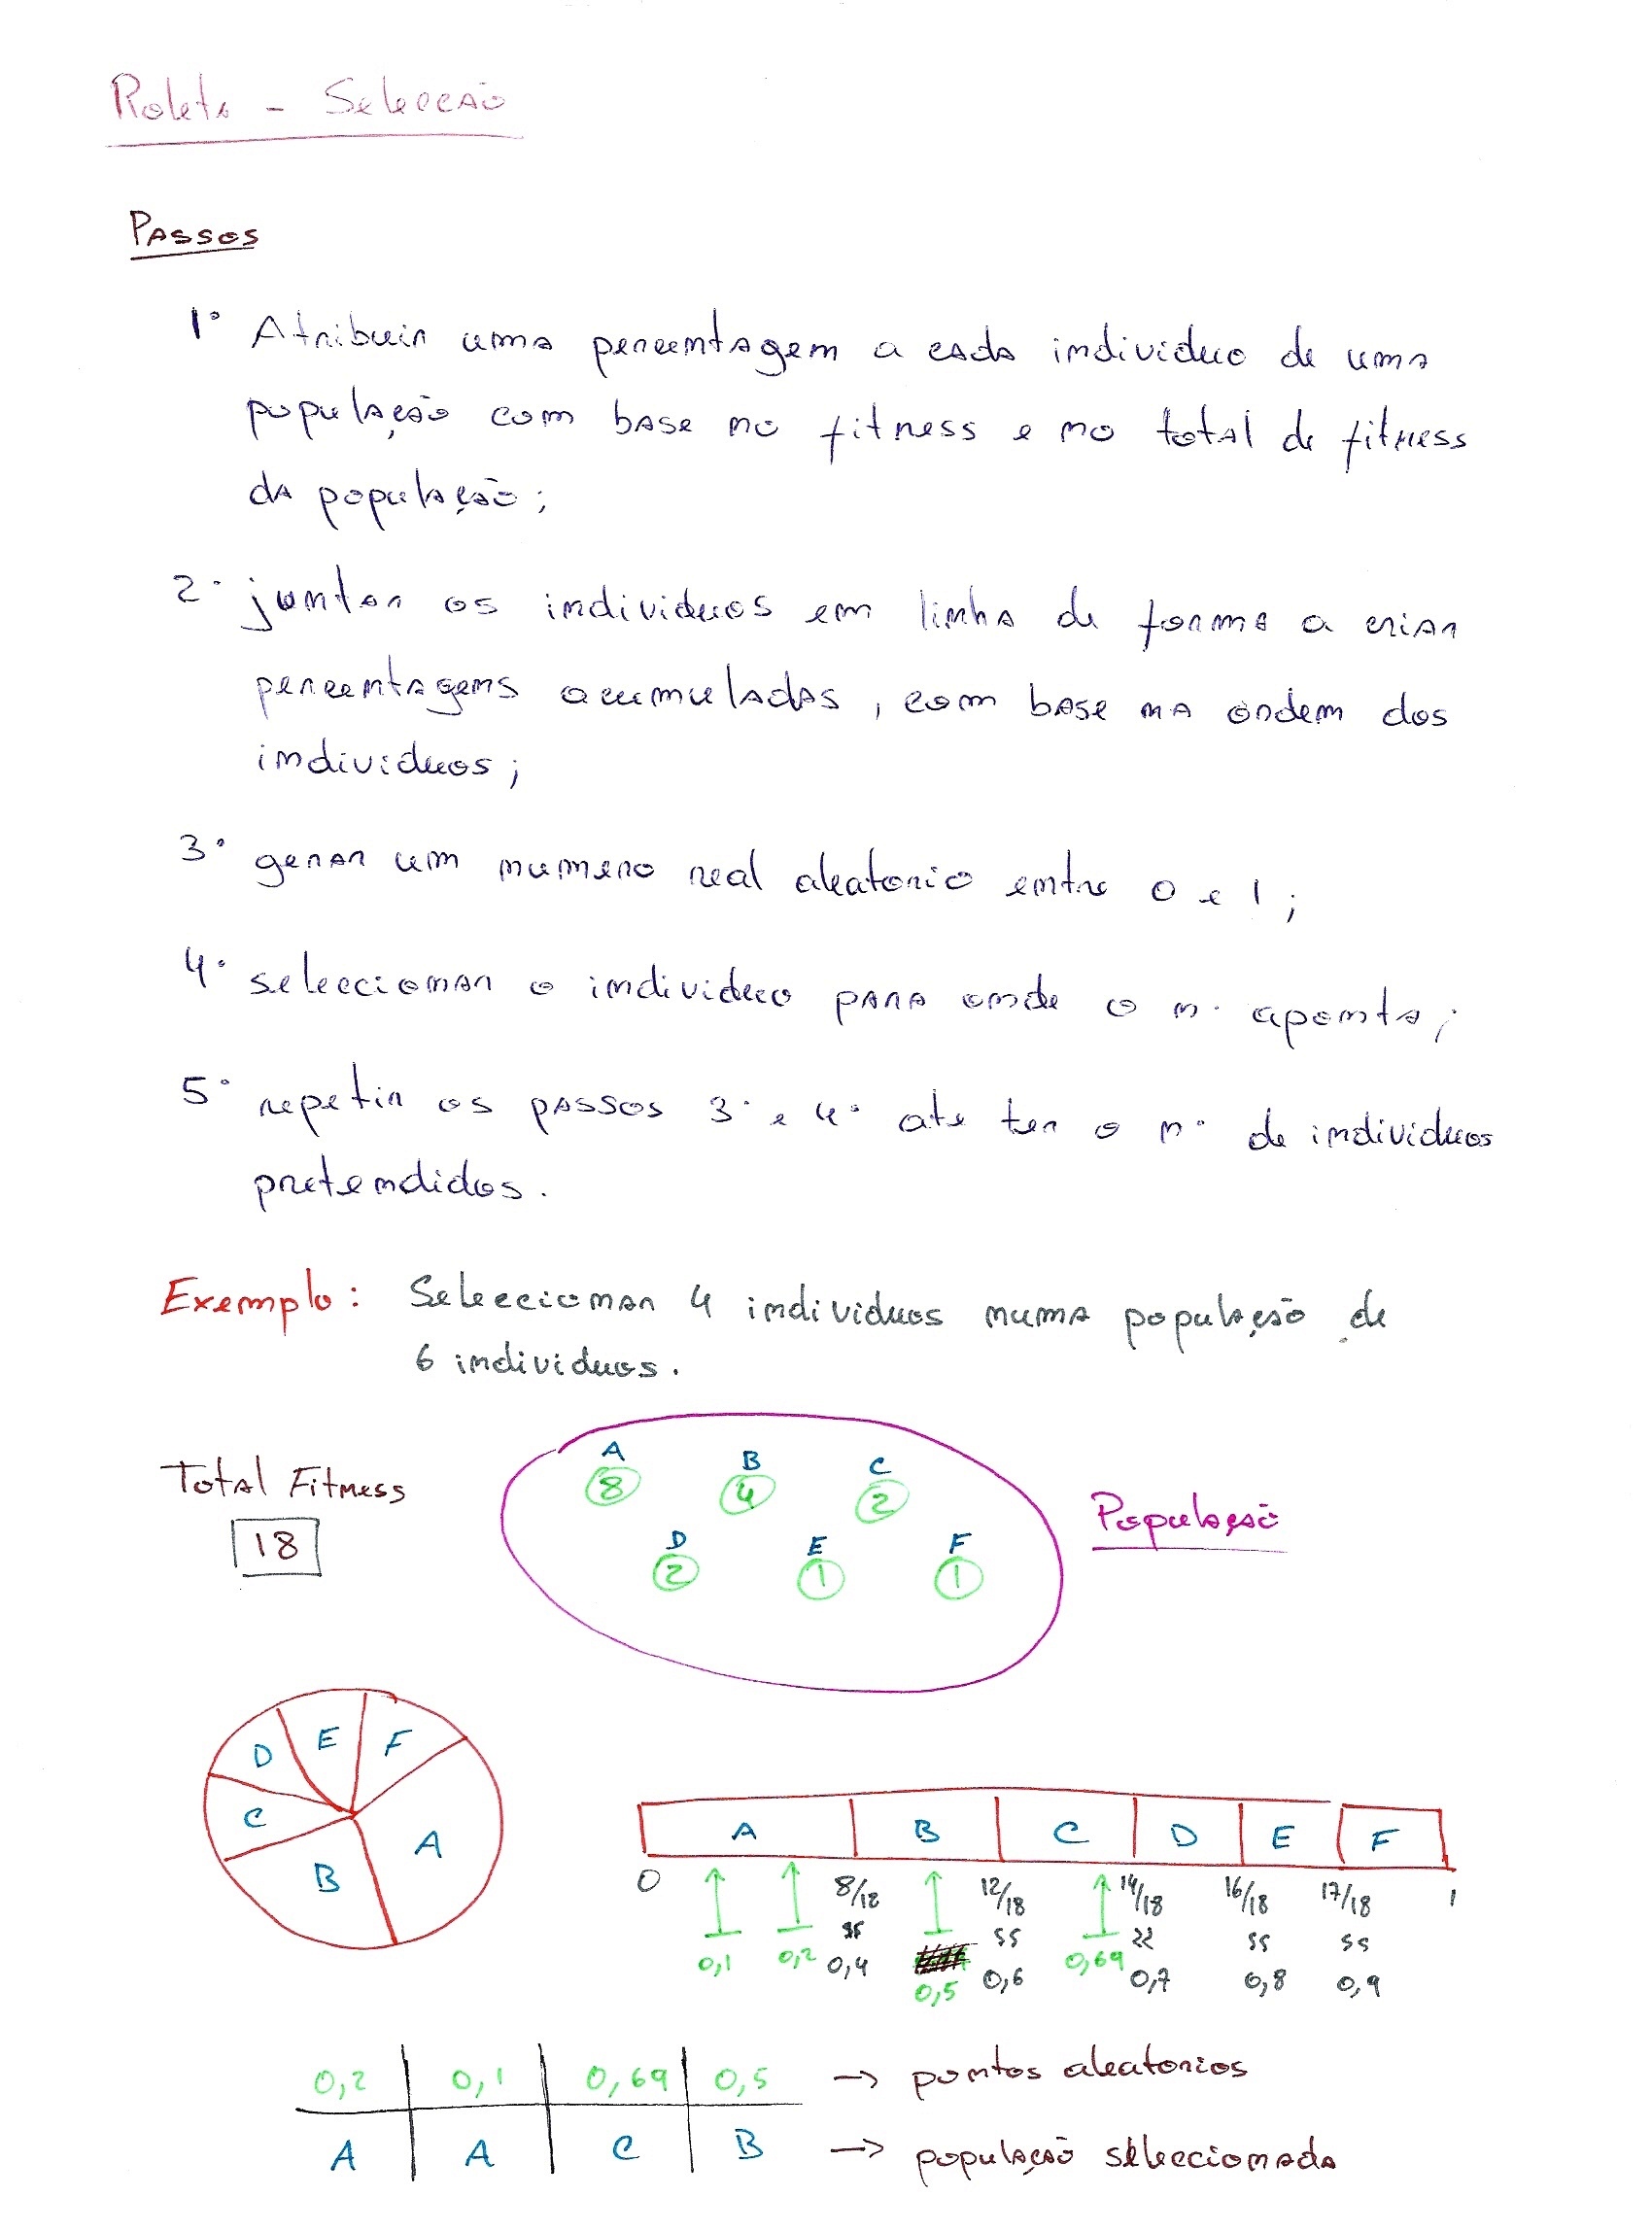 Roleta - Selecção
Passos
1º Atribuir uma percentagem a cada individuo de uma
população com base no fitness e no total de fitness
da população;
2º juntar os individuos em linha de forma a criar
percentagens acumuladas, com base na ordem dos
individuos;
3º gerar um numero real aleatorio entre 0 e 1;
4º seleccionar o individuo para onde o nº aponta;
5º repetir os passos 3º e 4º ate ter o nº de individuos
pretendidos.
Exemplo: Seleccionar 4 individuos numa população de
6 individuos.
Total Fitness
18
A B C
8 4 2
D E F
2 1 1
População
D E F
C A
B
A B C D E F
0 8/18 12/18 14/18 16/18 17/18 1
0,1 0,2 0,4 0,5 0,6 0,69 0,7 0,8 0,9
0,2 0,1 0,69 0,5 → pontos aleatorios
A A C B → população seleccionada